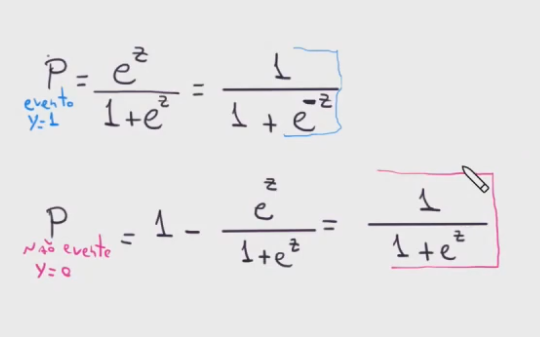 P evento y=1 = e^z / (1+e^z) = 1 / (1 + e^-z)
P não evento y=0 = 1 - e^z / (1+e^z) = 1 / (1+e^z)